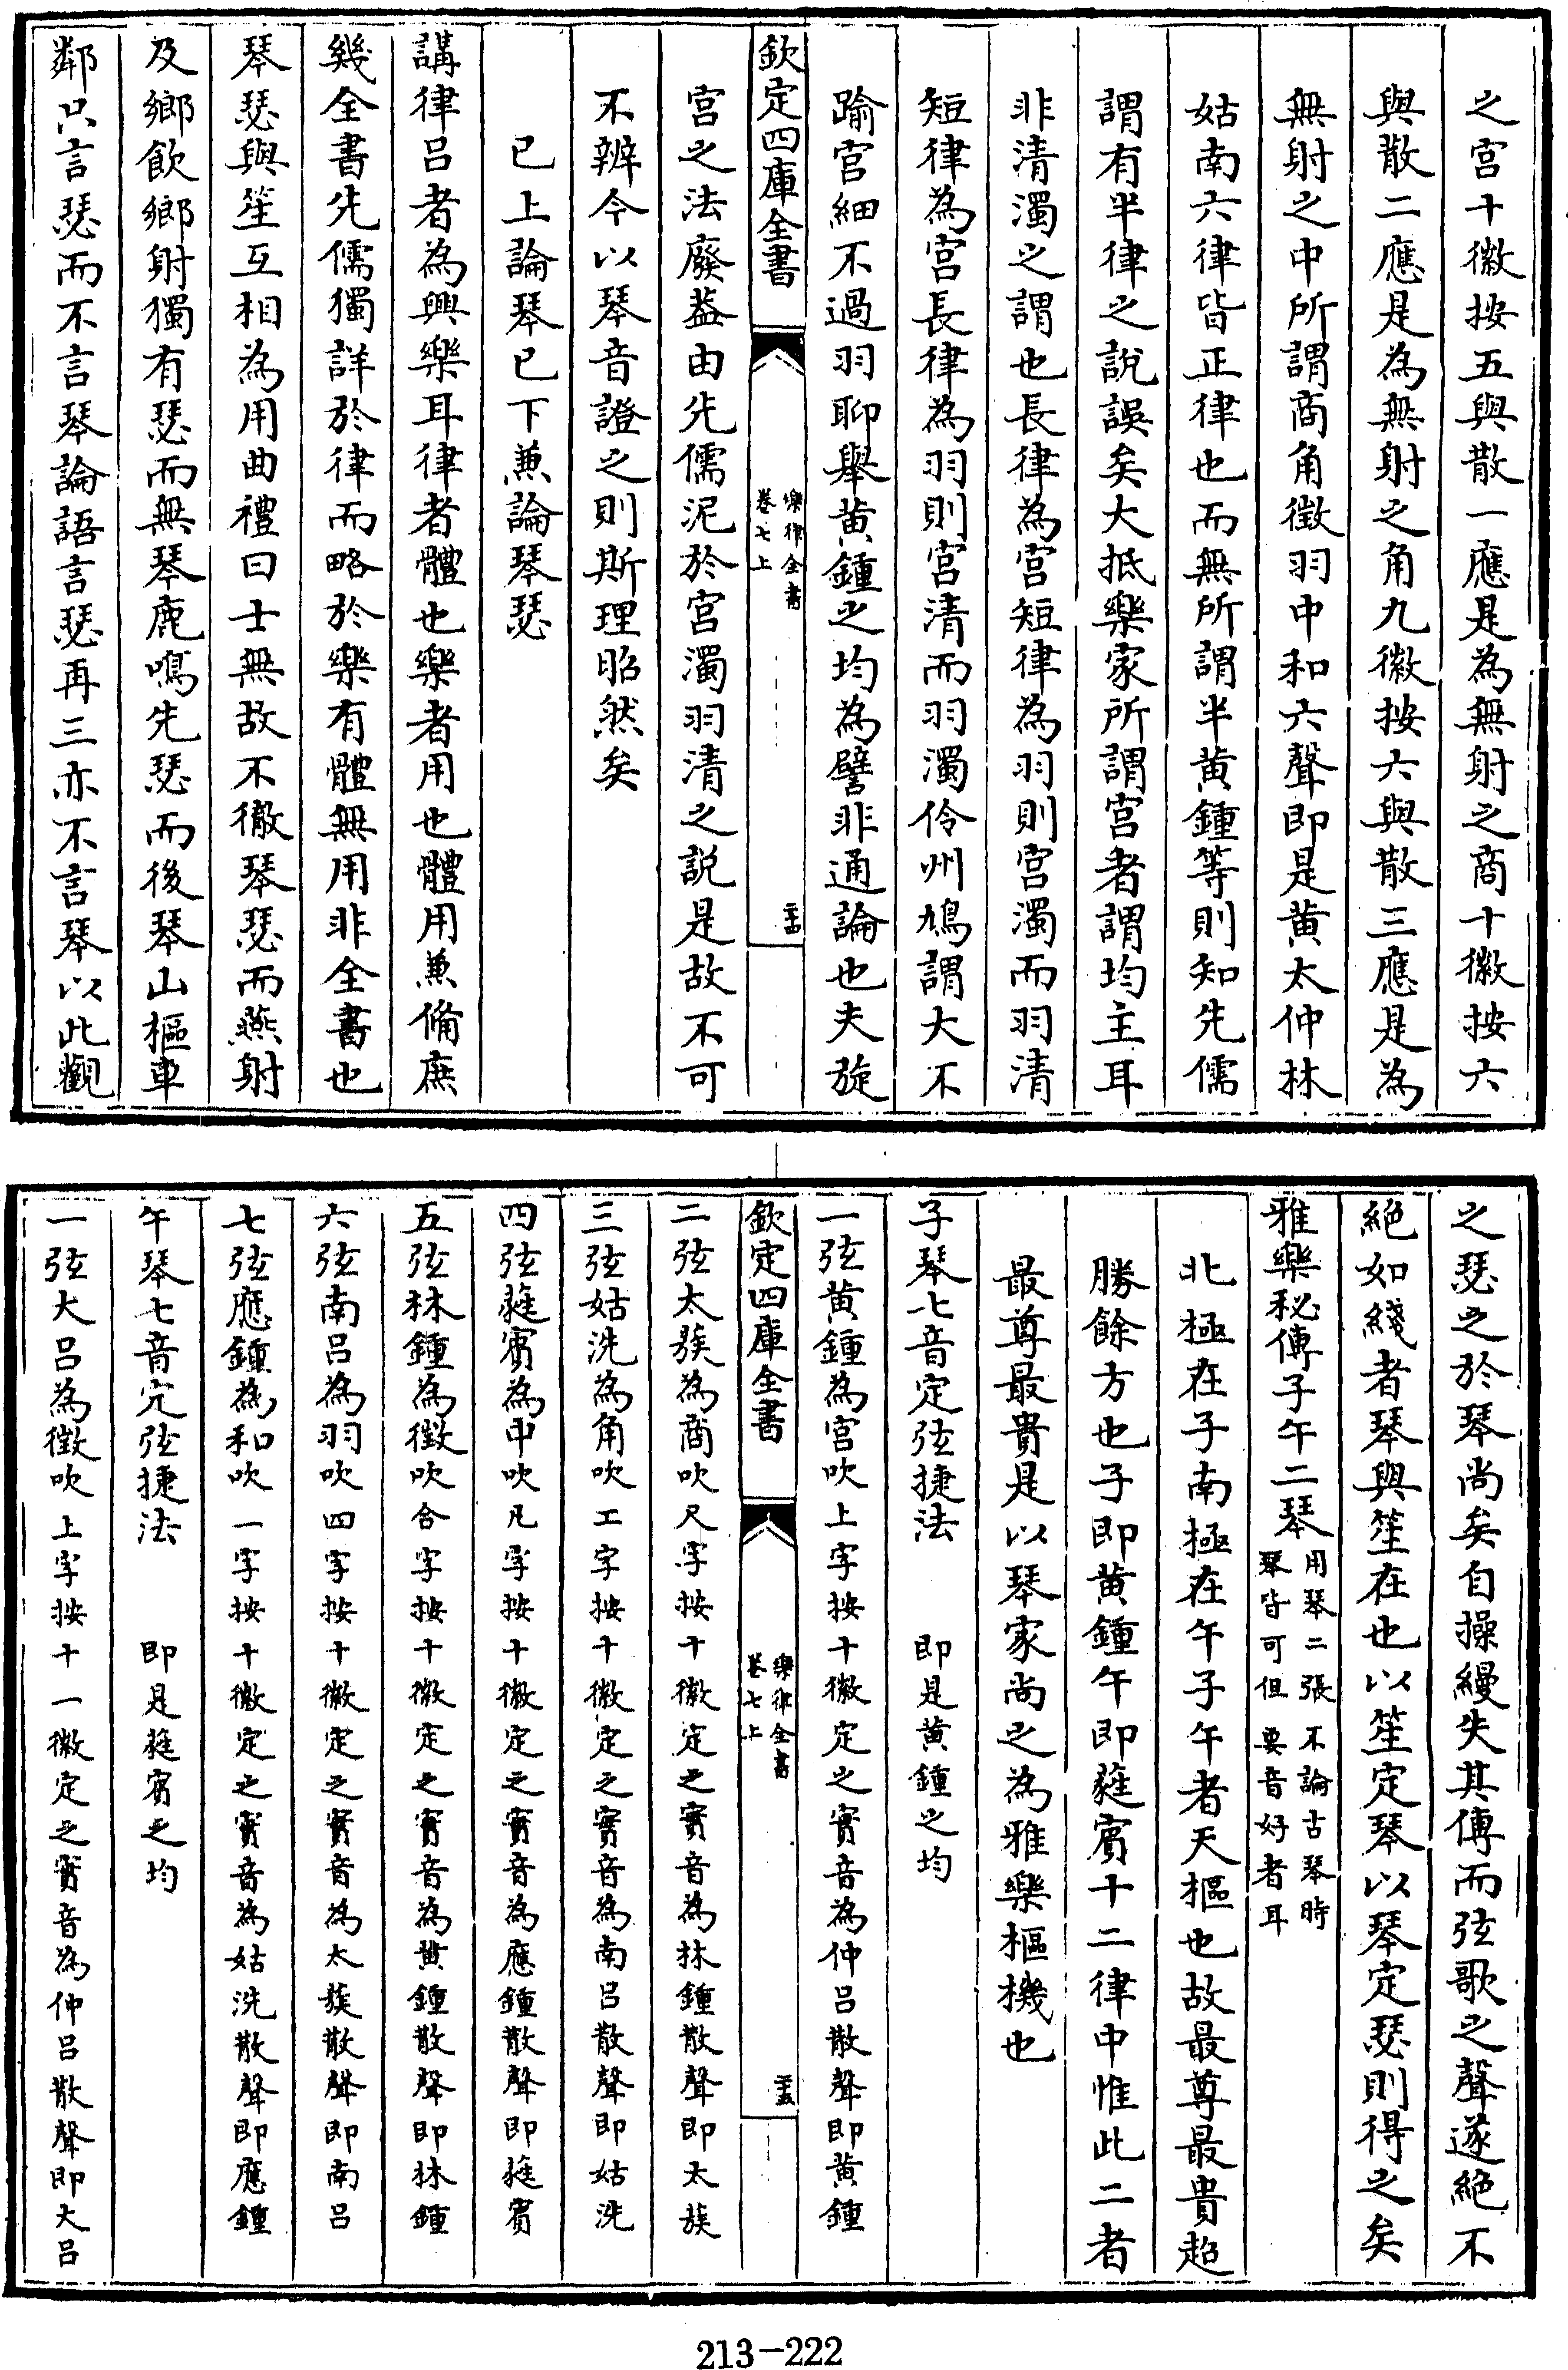 之宫十徽按五與散一應是為無射之商十徽按六
與散二應是為無射之角九徽按六與散三應是為
無射之中所謂商角徵羽中和六聲即是黄太仲林
姑南六律皆正律也而無所謂半黄鍾等則知先儒
謂有半律之說誤矣大抵樂家所謂宫者謂均主耳
非清濁之謂也長律為宫短律為羽則宫濁而羽清
短律為宫長律為羽則宫清而羽濁伶州鳩謂大不
踰宫細不過羽聊舉黄鍾之均為譬非通論也夫旋
欽定四庫全書
樂律全書
卷七上
二十四
宫之法廢葢由先儒泥於宫濁羽清之説是故不可
不辨今以琴音證之則斯理昭然矣
已上論琴已下兼論琴瑟
講律吕者為興樂耳律者體也樂者用也體用兼備庶
幾全書先儒獨詳於律而略於樂有體無用非全書也
琴瑟與笙互相為用曲禮曰士無故不徹琴瑟而燕射
及鄉飲鄉射獨有瑟而無琴鹿鳴先瑟而後琴山樞車
鄰只言瑟而不言琴論語言瑟再三亦不言琴以此觀
之瑟之於琴尚矣自操縵失其傳而弦歌之聲遂絶不
絶如綫者琴與笙在也以笙定琴以琴定瑟則得之矣
雅樂秘傳子午二琴
用琴二張不論古琴時
琴皆可但要音好者耳
北極在子南極在午子午者天樞也故最尊最貴超
勝餘方也子即黄鍾午即蕤賓十二律中惟此二者
最尊最貴是以琴家尚之為雅樂樞機也
子琴七音定弦捷法　即是黄鍾之均
一弦黄鍾為宫吹上字按十徽定之實音為仲吕散聲即黄鍾
欽定四庫全書
樂律全書
卷七上
二十五
二弦太蔟為商吹尺字按十徽定之實音為林鍾散聲即太蔟
三弦姑洗為角吹工字按十徽定之實音為南吕散聲即姑洗
四弦蕤賓為中吹凡字按十徽定之實音為應鍾散聲即蕤賓
五弦林鍾為徵吹合字按十徽定之實音為黄鍾散聲即林鍾
六弦南吕為羽吹四字按十徽定之實音為太蔟散聲即南吕
七弦應鍾為和吹一字按十徽定之實音為姑洗散聲即應鍾
午琴七音定弦捷法　即是蕤賓之均
一弦大吕為徵吹上字按十一徽定之實音為仲吕散聲即大吕
213—222